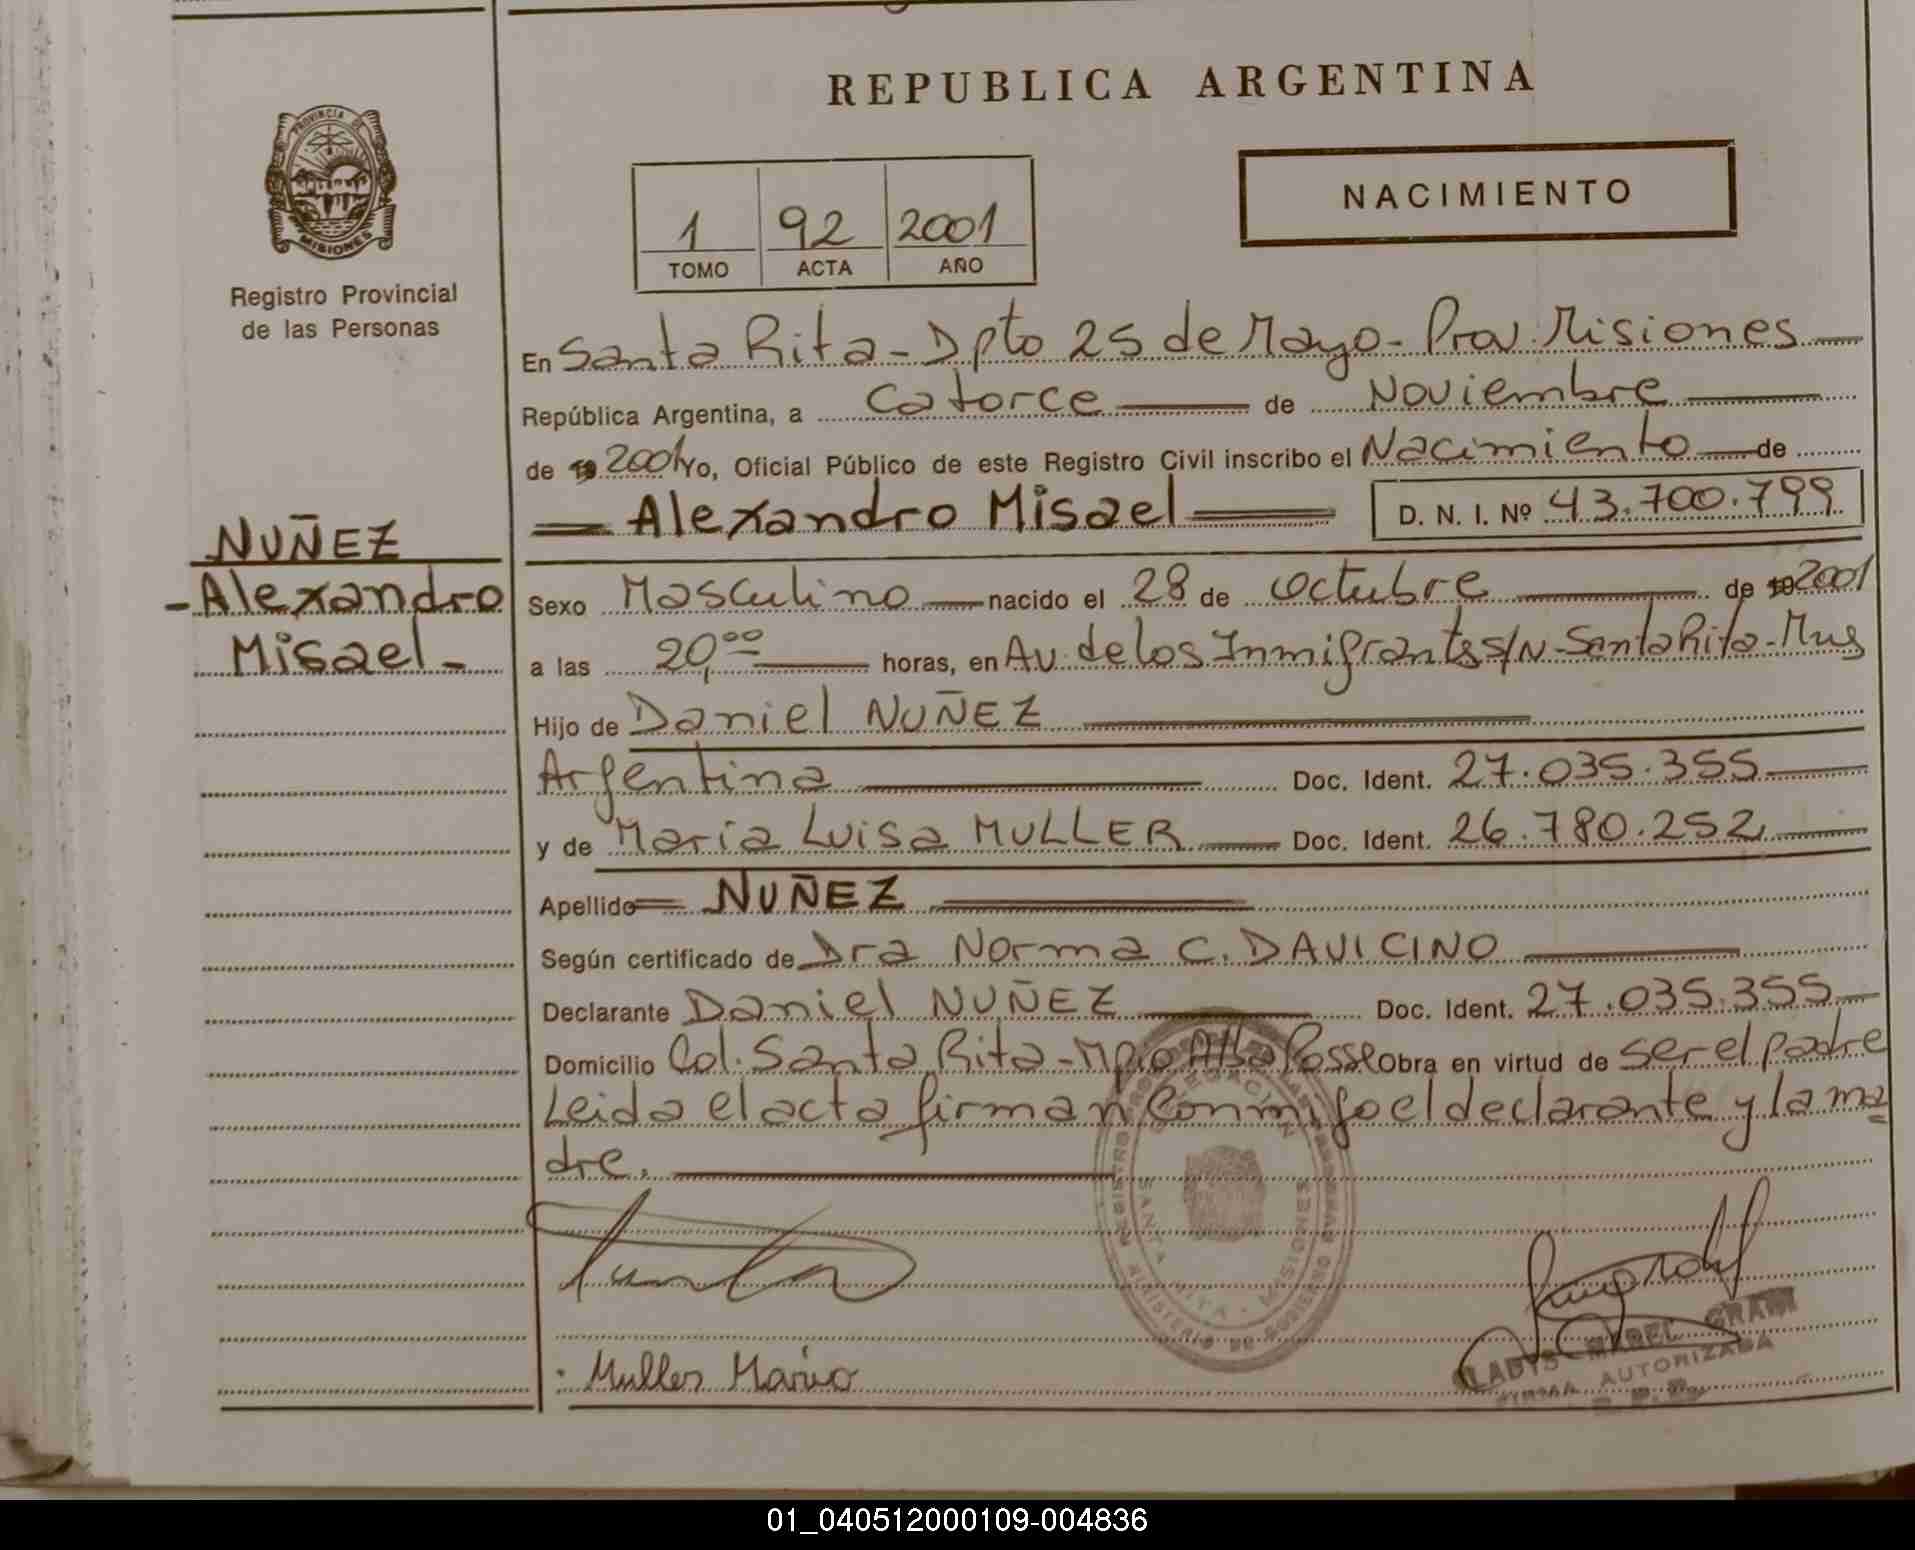 PROVINCIA DE
MISIONES
Registro Provincial
de las Personas
NUÑEZ
-Alexandro
Misael-
REPUBLICA ARGENTINA
1 92 2001
TOMO ACTA AÑO
NACIMIENTO
En Santa Rita - Dpto 25 de Mayo - Prov. Misiones
República Argentina, a Catorce de Noviembre
de 19 2001 Yo, Oficial Público de este Registro Civil inscribo el Nacimiento de
Alexandro Misael D. N. I. Nº 43.700.799
Sexo Masculino nacido el 28 de octubre de 19 2001
a las 20,00 horas, en Av. de los Inmigrantes s/N - Santa Rita - Mnes
Hijo de Daniel NUÑEZ
Argentina Doc. Ident. 27.035.355
y de María Luisa MULLER Doc. Ident. 26.780.252
Apellido NUÑEZ
Según certificado de Dra Norma C. DAVICINO
Declarante Daniel NUÑEZ Doc. Ident. 27.035.355
Domicilio Col. Santa Rita - Mpio Alba Posse Obra en virtud de ser el padre
Leida el acta firman Conmigo el declarante y la ma=
dre.
DELEGACION
SANTA RITA - MISIONES
MINISTERIO DE GOBIERNO
Muller Maria
GLADYS MABEL
FIRMA AUTORIZADA
R. P. P.
01_040512000109-004836